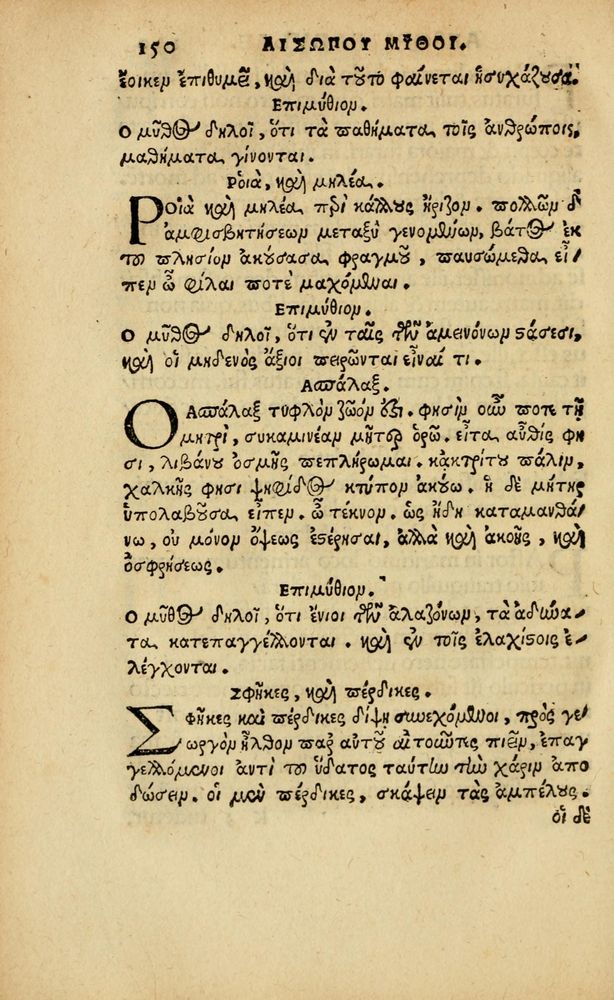 150 ΑΙΣΩΠΟΥ ΜΥ͂ΘΟΙ.
ἔοικεν ἐπιθυμεῖν, καὶ διὰ τοῦτο φαίνεται ἡσυχάζουσα.
Επιμύθιον.
Ο μῦθος δηλοῖ, ὅτι τὰ παθήματα τοῖς ἀνθρώποις,
μαθήματα γίνονται.
Ῥοιὰ, καὶ μηλέα.
Ροιὰ καὶ μηλέα περὶ κάλλους ἤριζον. πολλῶν δ᾽
ἀμφισβητήσεων μεταξὺ γενομένων, βάτος ἐκ
τοῦ πλησίον ἀκούσασα φραγμοῦ, παυσώμεθα εἶ
πεν ὦ φίλαι ποτὲ μαχόμεναι.
Επιμύθιον.
Ο μῦθος δηλοῖ, ὅτι ἐν ταῖς τῶν ἀμεινόνων στάσεσι,
καὶ οἱ μηδενὸς ἄξιοι πειρῶνται εἶναί τι.
Ασπάλαξ.
Ο Ασπάλαξ τυφλὸν ζῶόν ἐστι. φησὶν οὖν ποτε τῇ
μητρὶ, συκαμινέαν μῆτερ ὁρῶ. εἶτα αὖθίς φη
σι, λιβάνου ὀσμῆς πεπλήρωμαι. κἀκτρίτου πάλιν,
χαλκῆς φησι ψηφίδος κτύπον ἀκούω. ἡ δὲ μήτηρ
ὑπολαβοῦσα, εἶπεν. ὦ τέκνον. ὡς ἤδη καταμανθά
νω, οὐ μόνον ὄψεως ἐστέρησαι, ἀλλὰ καὶ ἀκοῆς, καὶ
ὀσφρήσεως.
Επιμύθιον.
Ο μῦθος δηλοῖ, ὅτι ἔνιοι τῶν ἀλαζόνων, τὰ ἀδύνα-
τα κατεπαγγέλλονται. καὶ ἐν τοῖς ἐλαχίστοις ἐ-
λέγχονται.
Σφῆκες, καὶ πέρδικες.
Σφῆκες καὶ πέρδικες δίψῃ συνεχόμενοι, πρὸς γε-
ωργὸν ἦλθον παρ᾽ αὐτοῦ αἰτοῦντες πιεῖν, ἐπαγ
γελλόμενοι ἀντὶ τοῦ ὕδατος ταύτην τὴν χάριν ἀπο
δώσειν. οἱ μὲν πέρδικες, σκάψειν τὰς ἀμπέλους.
οἱ δὲ